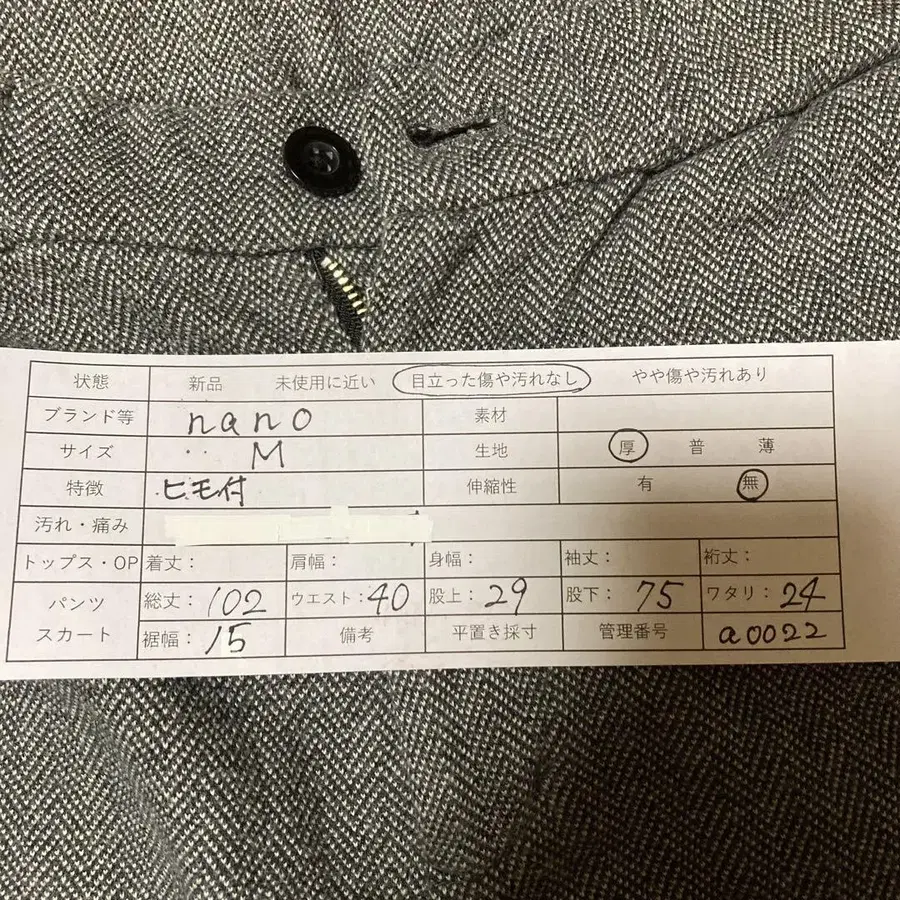 状態 新品 未使用に近い 目立った傷や汚れなし やや傷や汚れあり
ブランド等 nano 素材
サイズ M 生地 厚 普 薄
特徴 ヒモ付 伸縮性 有 無
汚れ・痛み
トップス・OP 着丈: 肩幅: 身幅: 袖丈: 裄丈:
パンツ 総丈: 102 ウエスト: 40 股上: 29 股下: 75 ワタリ: 24
スカート 裾幅: 15 備考 平置き採寸 管理番号 a0022